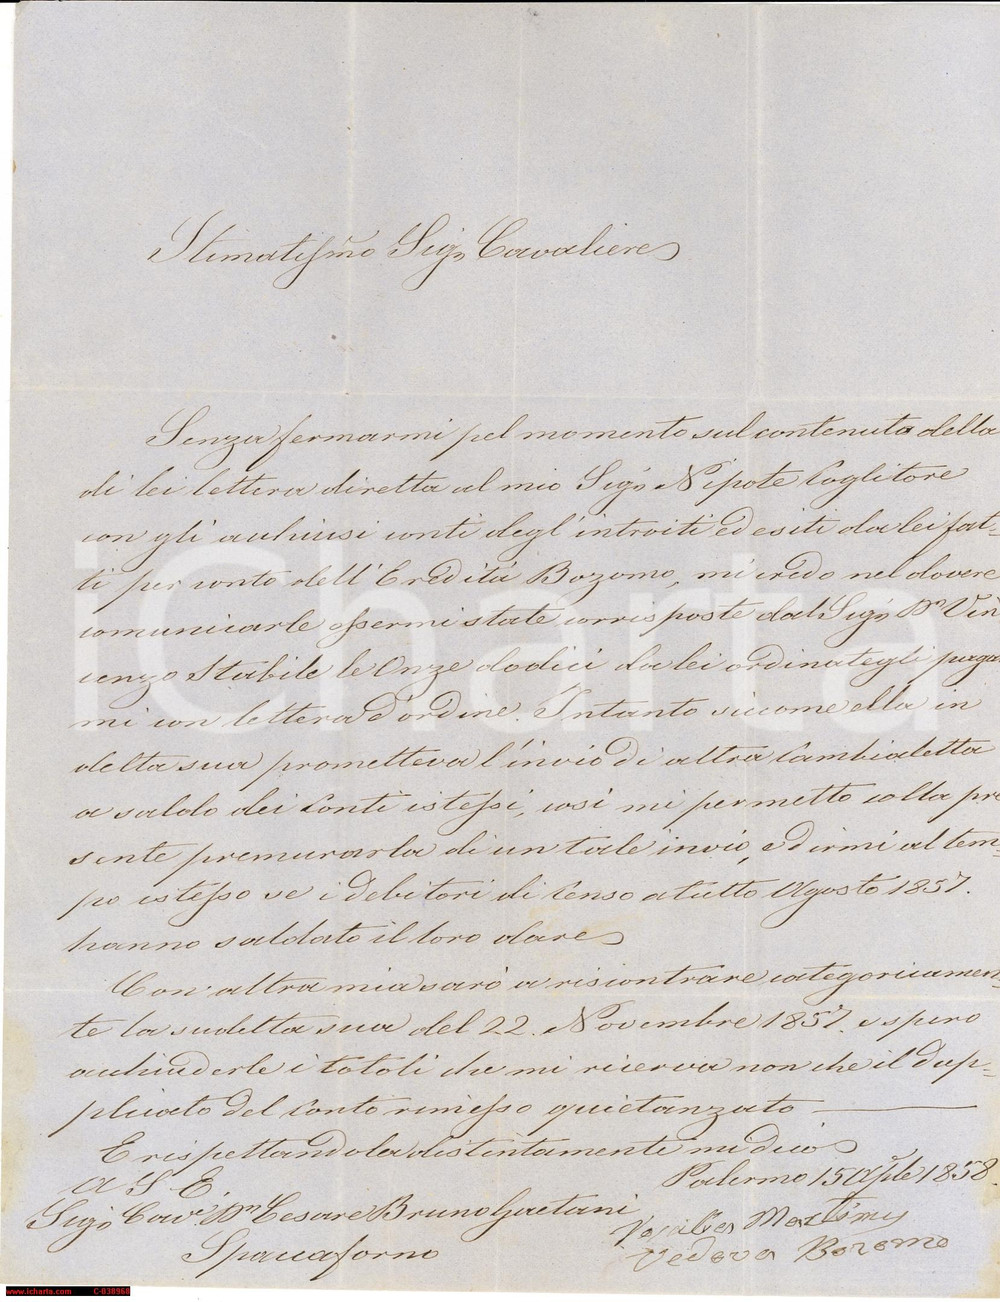 Stimatissmo Sigr Cavaliere
Senza fermarmi pel momento sul contenuto della
di lei lettera diretta al mio Sigr Nipote Coglitore
con gli acchiusi conti degl'introiti ed esiti da lei fat-
ti per conto dell'Eredità Bozomo, mi credo nel dovere
comunicarle essermi state corrisposte dal Sigr Dn Vin
cenzo Stabile le Onze dodici da lei ordinategli pagar
mi con lettera d'ordine. Intanto siccome ella in
detta sua prometteva l'invio di altra Cambialetta
a saldo dei Conti istessi, così mi permetto colla pre
sente premurarla di un tale invio, e dirmi al tem-
po istesso se i debitori di Censo a tutto Agosto 1857.
hanno saldato il loro dare
Con altra mia sarò a riscontrare categoricamen
te la sudetta sua del 22. Novembre 1857. e spero
acchiuderle i totoli che mi ricerva non che il dup-
plicato del Conto rimesso quietanzato
E rispettandola distintamente mi dico
Palermo 15 Aple 1858.
A S. E.
Sigr Cave. Dn Cesare Bruno Gaetani
Spaccaforno
Vedova Bozomo
iCharta
www.icharta.com C-038968